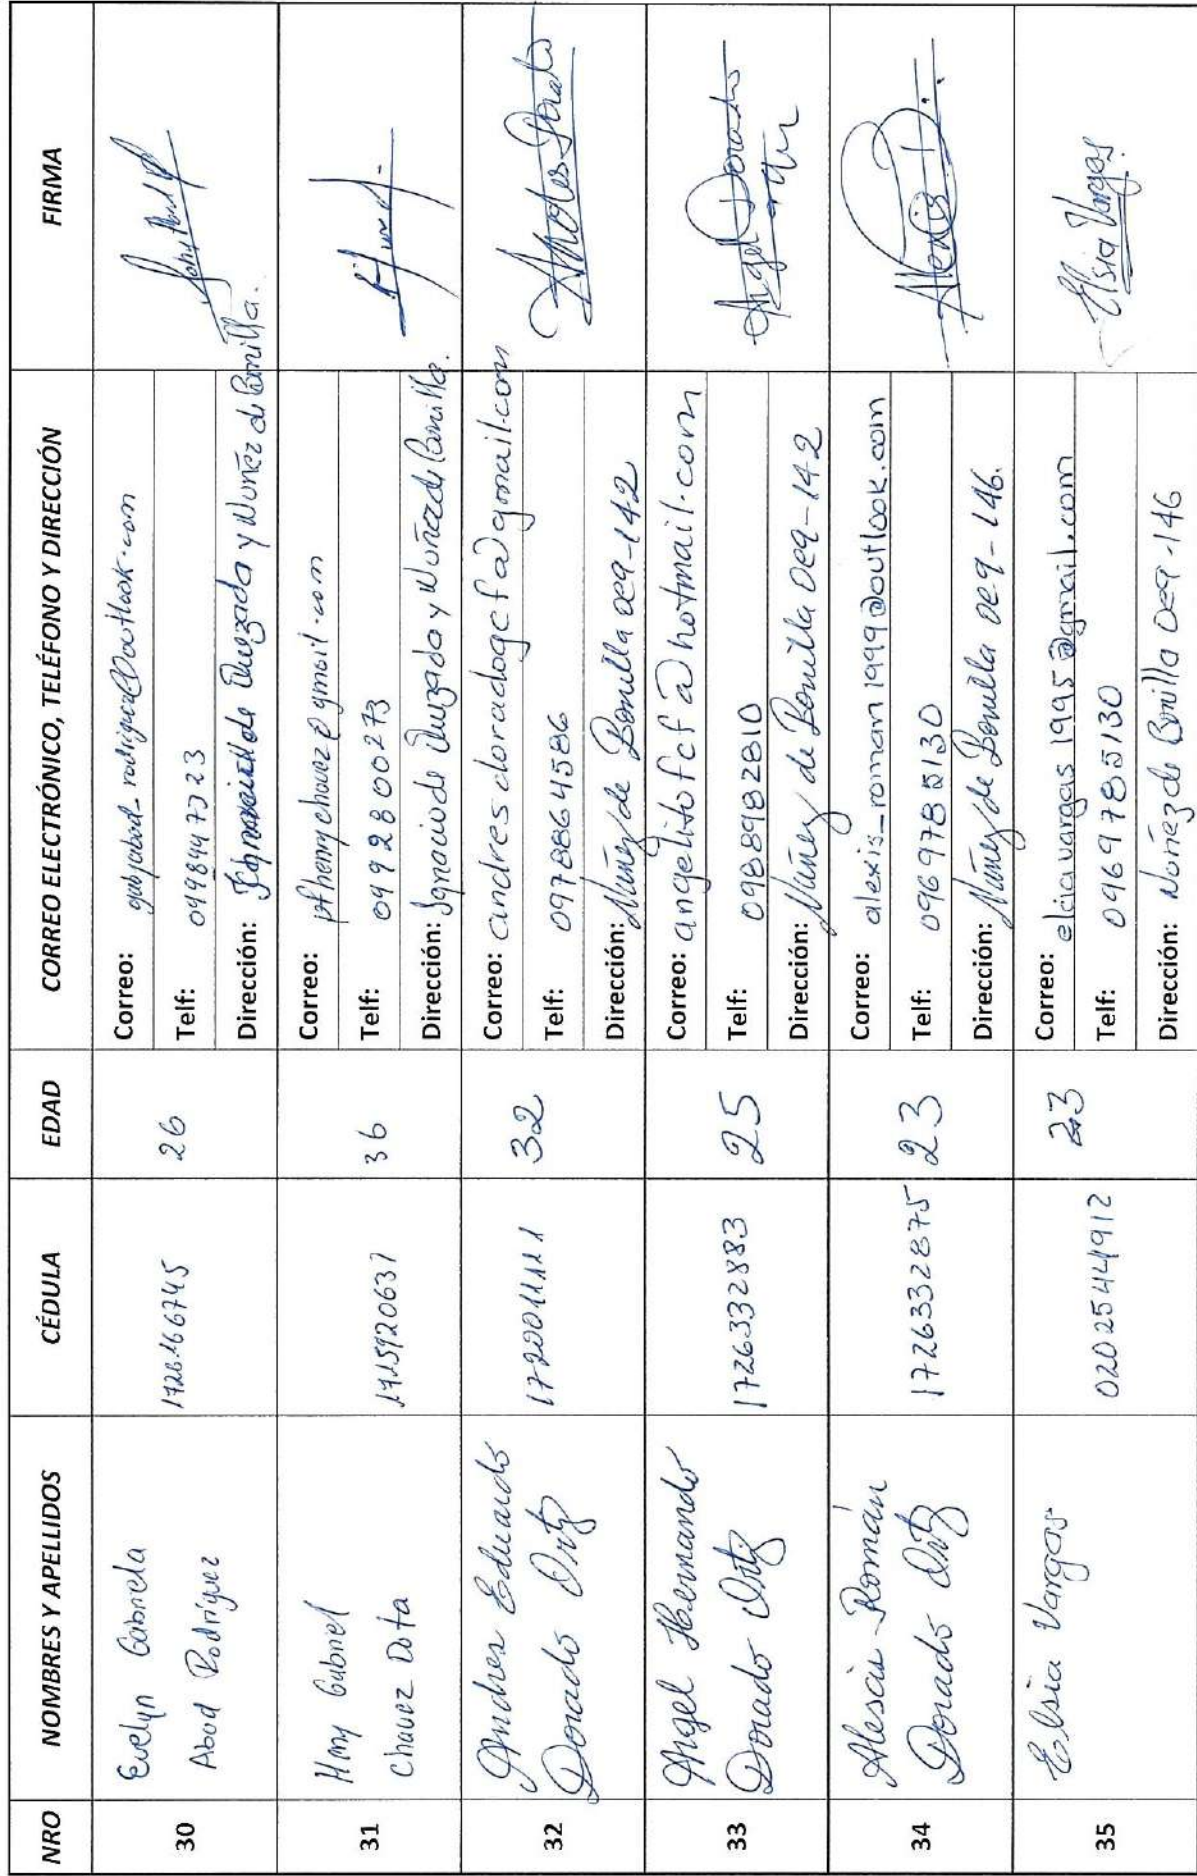 NRO NOMBRES Y APELLIDOS CÉDULA EDAD CORREO ELECTRÓNICO, TELÉFONO Y DIRECCIÓN FIRMA
30
Evelyn Gabriela
Abad Rodríguez
26
Correo:
Telf:
Dirección: de Quezada y Nuñez de Bonilla.
31
Gabriel
Chavez Dota
1715920637
36
Correo: pfhenrychavez@gmail.com
Telf: 0992800273
Dirección: Ignacio de Quezada y Nuñez de Bonilla.
32
Andres Eduardo
Dorado Ortiz
32
Correo: andresdoradogcf@gmail.com
Telf: 0978864586
Dirección: Núñez de Bonilla Oe9-142
33
Angel Hernando
Dorado Ortiz
1726332883
25
Correo: angelitofcf@hotmail.com
Telf: 0988982810
Dirección: Núñez de Bonilla Oe9-142
Angel Dorado
34
Román
Dorado Ortiz
1726332875
23
Correo: alexis_roman1999@outlook.com
Telf: 0969785130
Dirección: Núñez de Bonilla Oe9-146.
Alexis D.
35
Elsia Vargas
0202544912
23
Correo:
Telf: 0969785130
Dirección: Nuñez de Bonilla Oe9-146
Elsia Vargas